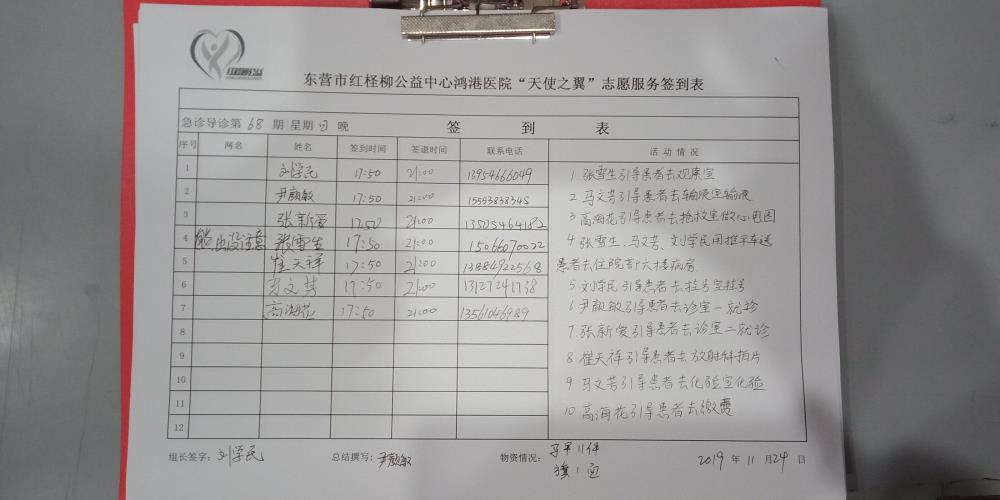 东营市红柽柳公益中心鸿港医院“天使之翼”志愿服务签到表
急诊导诊第 68 期 星期 日 晚 签 到 表
序号 网名 姓名 签到时间 签退时间 联系电话 活动情况
1 刘学民 17:50 21:00 13954666049
2 尹颜敏 17:50 21:00 15553838345
3 张新爱 17:50 21:00
4 熊出没注意 张雪生 17:50 21:00 15066070022
5 崔天祥 17:50 21:00 13884922568
6 马文芳 17:50 21:00 13127241738
7 高海花 17:50 21:00
8
9
10
11
12
1 张雪生引导患者去观察室
2 马文芳引导患者去输液室输液
3 高海花引导患者去抢救室做心电图
4 张雪生、马文芳、刘学民用推平车送
患者去住院部六楼病房
5 刘学民引导患者去挂号室挂号
6 尹颜敏引导患者去诊室一就诊
7 张新爱引导患者去诊室二就诊
8 崔天祥引导患者去放射科拍片
9 马文芳引导患者去化验室化验
10 高海花引导患者去缴费
组长签字: 刘学民 总结撰写: 尹颜敏 物资情况: 马甲11件 2019 年 11 月 24 日
旗1面